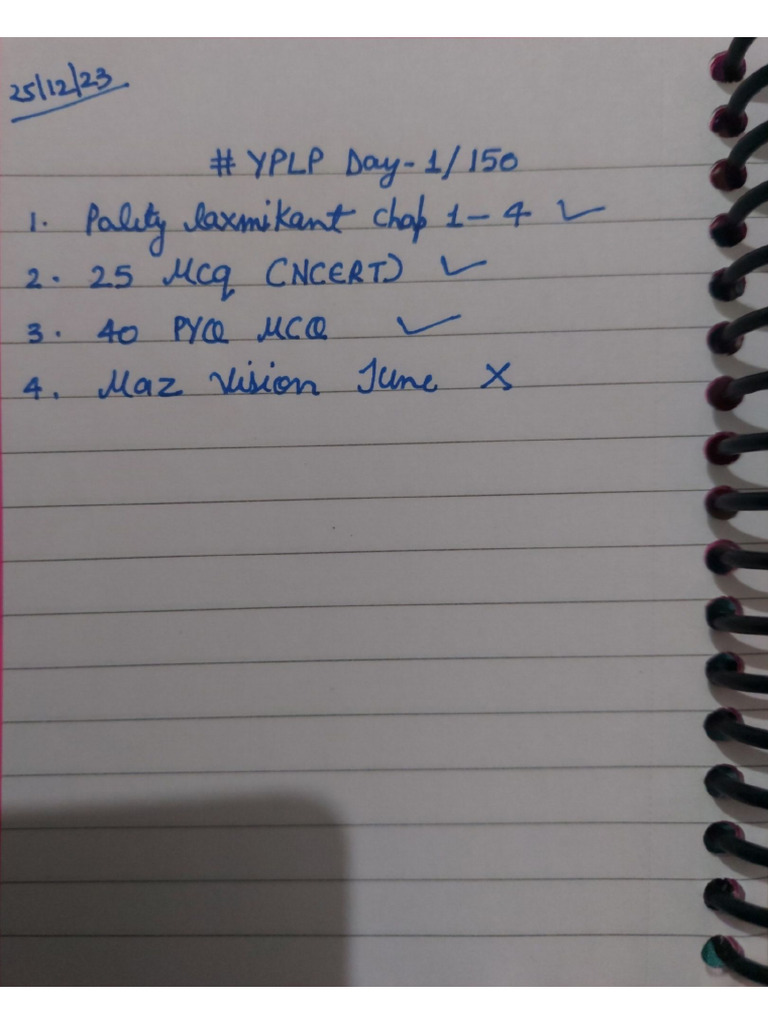 25/12/23
# YPLP Day-1/150
1. Polity laxmikant Chap 1-4 ✓
2. 25 Mcq (NCERT) ✓
3. 40 PYQ MCQ ✓
4. Maz Vision June ×